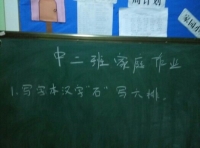 周计划
家园
中二班家庭作业
1.写字本汉字"石"写六排.